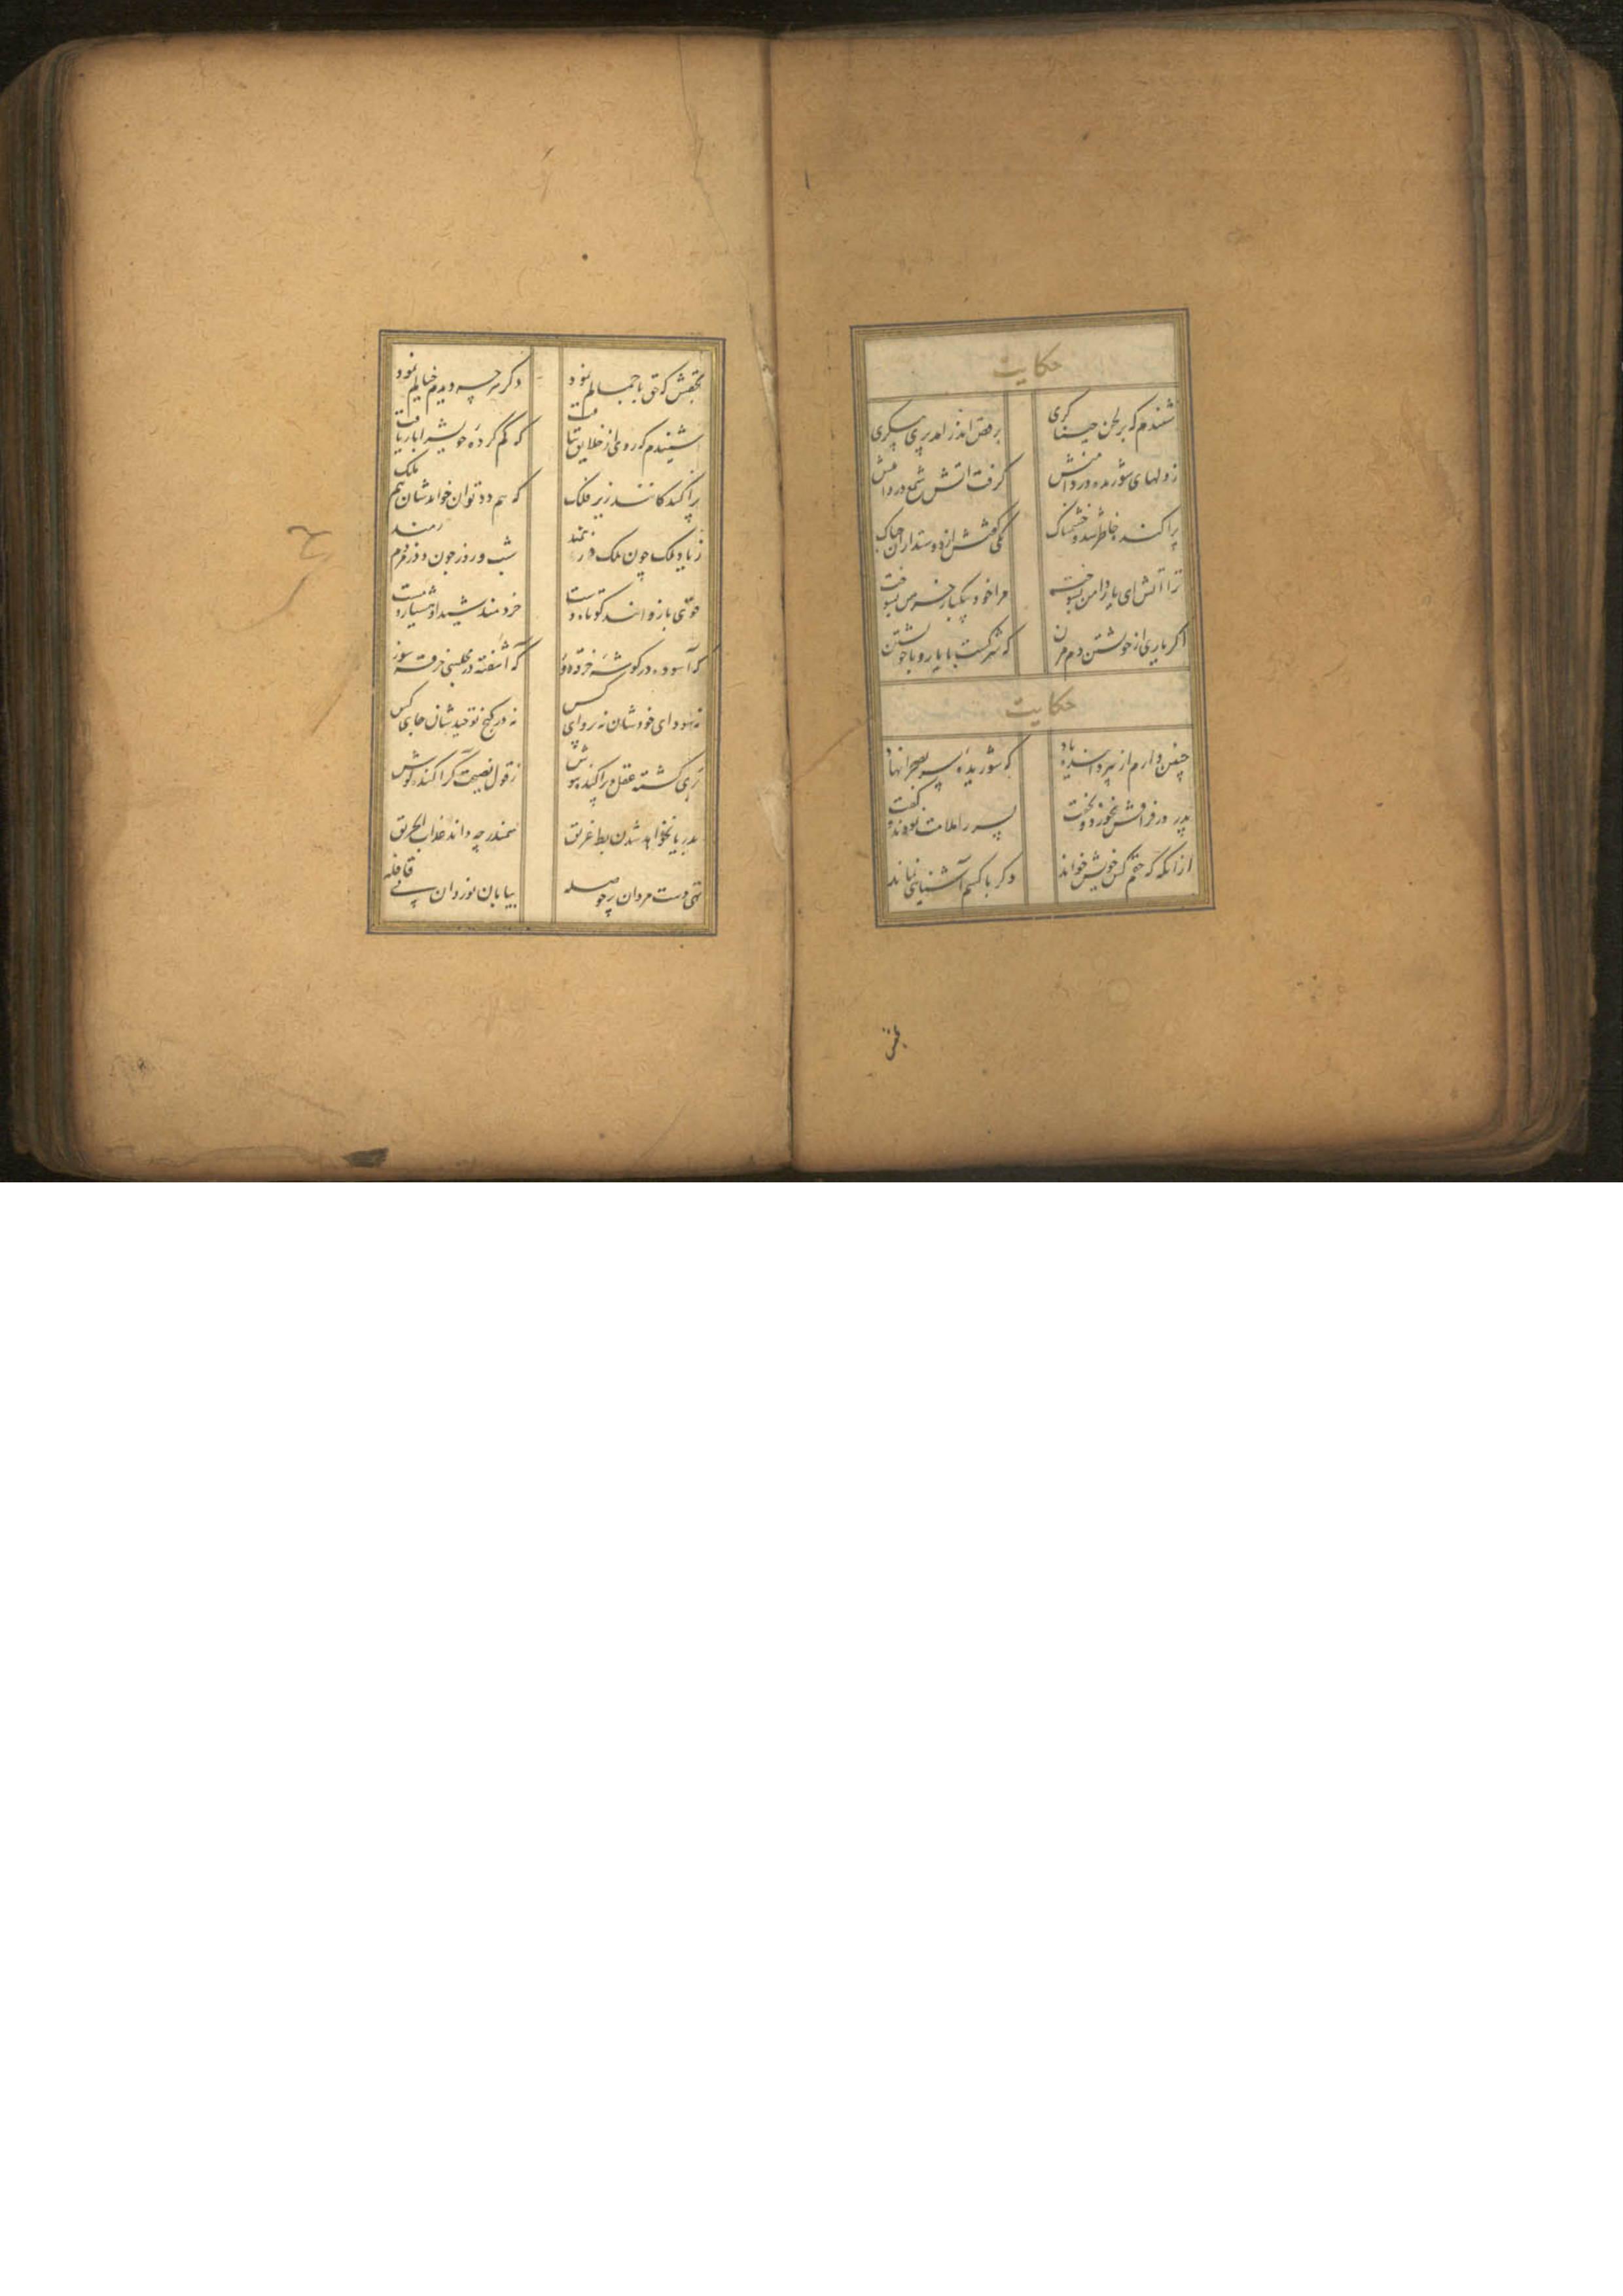 حکایت
شنیدم که بر لحن خنیاگری برقص اندر آمد پری پیکری
ز دلهای شوریده پیرامنش گرفت آتش شمع در دامنش
پراکنده خاطر شد و خشمناک یکی گفتش از دوستداران چه باک
ترا آتش ای یار دامن بسوخت مرا خود بیکبار خرمن بسوخت
اگر یاری از خویشتن دم مزن که شرکست با یار و با خویشتن
حکایت
چنین دارم از پیر داننده یاد که شوریده سر بصحرا نهاد
پدر در فراقش نخورد و نخفت پسر را ملامت نمودند گفت
از انکه که حقم کس خویش خواند دگر با کسم آشنایی نماند
بحقش
بحقش که حق تا جمالم نمود دگر هر چه دیدم خیالم نمود
شنیدم که روی از خلایق بتافت که گم کرده خویش را باز یافت
پراکندگانند زیر فلک که هم دد توان خواندشان هم ملک
ز یاد ملک چون ملک نارمند شب و روز چون دد ز مردم رمند
قوی بازوانند کوتاه دست خردمند شیدا و هشیار مست
گه آسوده در گوشه خرقه دوز گه آشفته در مجلسی خرقه سوز
نه سودای خودشان نه پروای کس نه در کنج توحیدشان جای کس
پریشیده عقل و پراکنده هوش ز قول نصیحت گر آکنده گوش
بدریا نخواهد شدن بط غریق سمندر چه داند عذاب الحریق
تهی دست مردان پر حوصله بیابان نوردان پی قافله